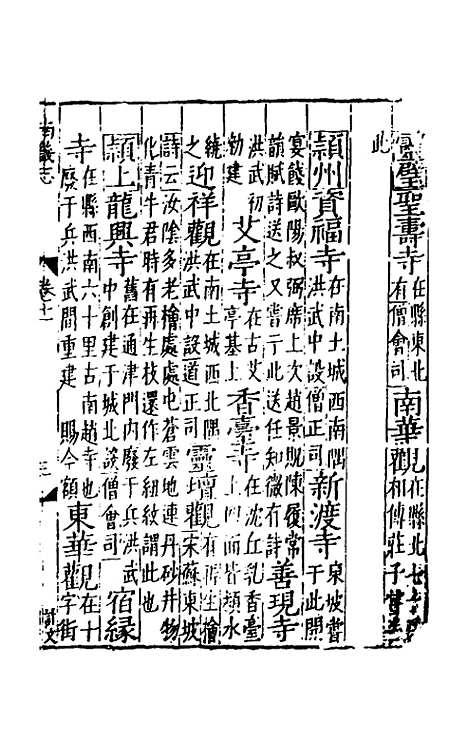 靈璧聖壽寺在縣東北有僧會司南華觀在縣北七十相傳莊子嘗
此
潁州資福寺在南土城西南隅洪武中設僧正司新渡寺東坡嘗于此開
宴餞歐陽叔弼席上次趙景貺陳履常韻賦詩送之又嘗于此送任知微有詩善現寺
洪武初勅建艾亭寺在古艾亭基上香臺寺在沈丘乳香臺上四面皆潁水
繞之迎祥觀在南土城西北隅洪武中設道正司靈壇觀有再生檜宋蘇東坡
詩云汝陰多老檜處處屯蒼雲地連丹砂井物化青牛君時有再生枝還作左紐紋謂此也
潁上龍興寺舊在通津門內廢于兵洪武中創建于城北設僧會司宿緣
寺在縣西南六十里古南趙寺也廢于兵洪武間重建 賜今額東華觀在十字街
南畿志 卷十一 三